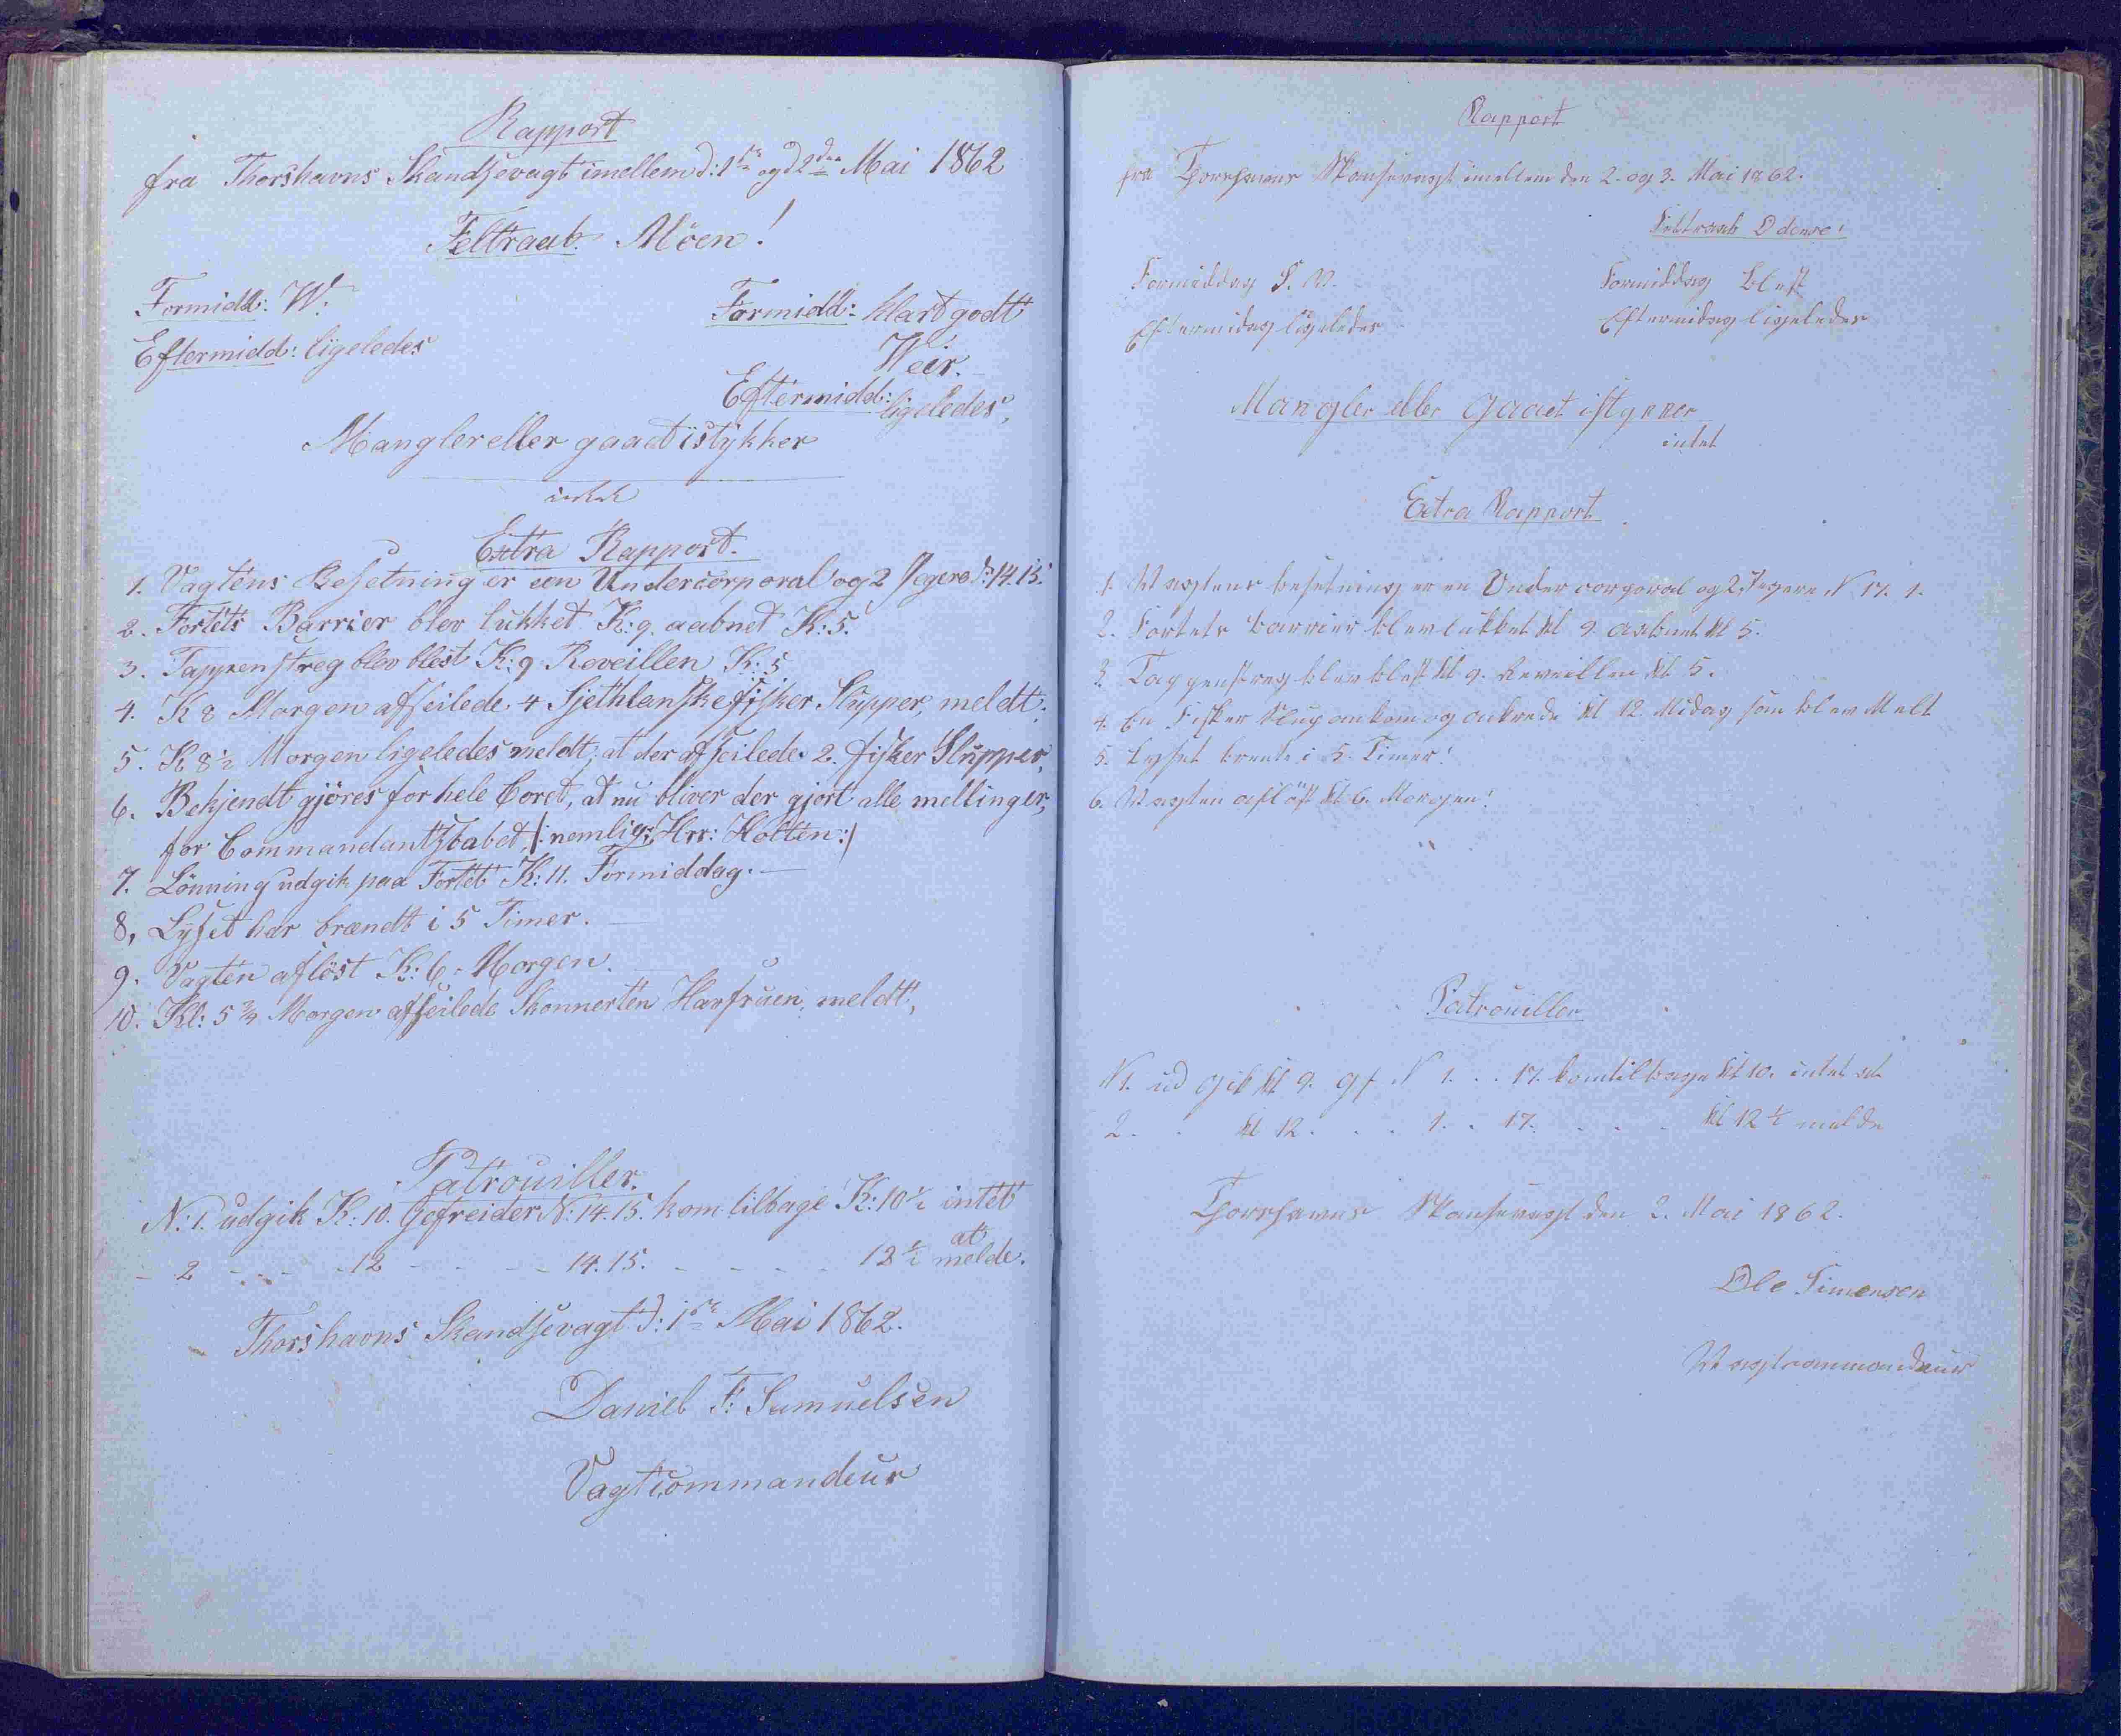 Rapport
fra Thorshavns Skandsevagt imellem d: 1ste og d 2den Mai 1862
Feltraab Möen!
Formidd: W.
Eftermidd: ligeledes
Formidd: klart godt
Veir.
Eftermidd: ligeledes,
Mangler eller gaaet istykker
intet
Extra Rapport.
1. Vagtens Besetning er een Undercorporal og 2 Jegere No: 14. 15.
2. Fortets Barrier blev lukket K: 9. aabnet K: 5.
3. Tappenstreg blev blest K: 9 Reveillen K: 5
4. K 8 Morgen afseilede 4 Sjethlanske fisker Slupper, meldt;
5. K 8½ Morgen ligeledes meldt, at der afseilede 2. fisker Slupper,
6. Bekjendt gjöres for hele Coret, at nu bliver der gjort alle mellinger,
for Commandantskabet, /: nemlig: Hrr: Holten :/
7. Lönning udgik paa Fortet K: 11. Formiddag.
8, Lyset har brændt i 5 Timer.
9. Vagten aflöst K: 6. Morgen.
10. Kl: 5¾ Morgen afseilede Skonnerten Havfruen, meldt,
Patrouiller.
N: 1. udgik K: 10. Gefreider N: 14. 15. kom tilbage K: 10½ intet
at
- 2 - - - 12 - - - - 14. 15. - - - - 12½ melde.
Thorshavns Skandsevagt d: 1ste Mai 1862.
Daniel F: Samuelsen
Vagtcommandeur
Rapport
fra Thorshavns Skansevagt imellem den 2. og 3. Mai 1862.
Feltraab Odense!
Formiddag S. W.
Eftermidag ligeledes
Formiddag blest
Eftermidag ligeledes
Mangler eller Gaaet istykker
intet
Extra Rapport
1. Wagtens besetning er en Undercorporal og 2 Jegere N 17. 1.
2. Fortets barrier blev lukket kl 9. aabnet kl 5.
3. Tappenstreg blev blest kl 9. Reveillen kl 5.
4. En Fisker Slup ankom og ankrede kl 12 Midag som blev Melt
5. Lyset brente i 5. Timer!
6. Wagten aflöst kl 6. Morgen!
Patrouiller
N 1. ud gik kl 9. gf N 1. . . 17. kom tilbage kl 10. intet at
2. . kl 12. . . . 1. . 17. . . . kl 12½ melde
Thorshavns Skansevagt den 2. Mai 1862.
Ole Simensen
Wagtcommandeur